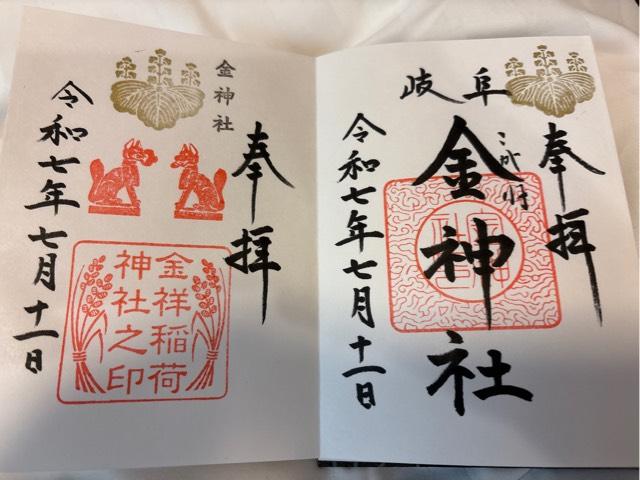 奉拝
岐阜
金神社
令和七年七月十一日
奉拝
金神社
金祥稲荷
神社之印
令和七年七月十一日